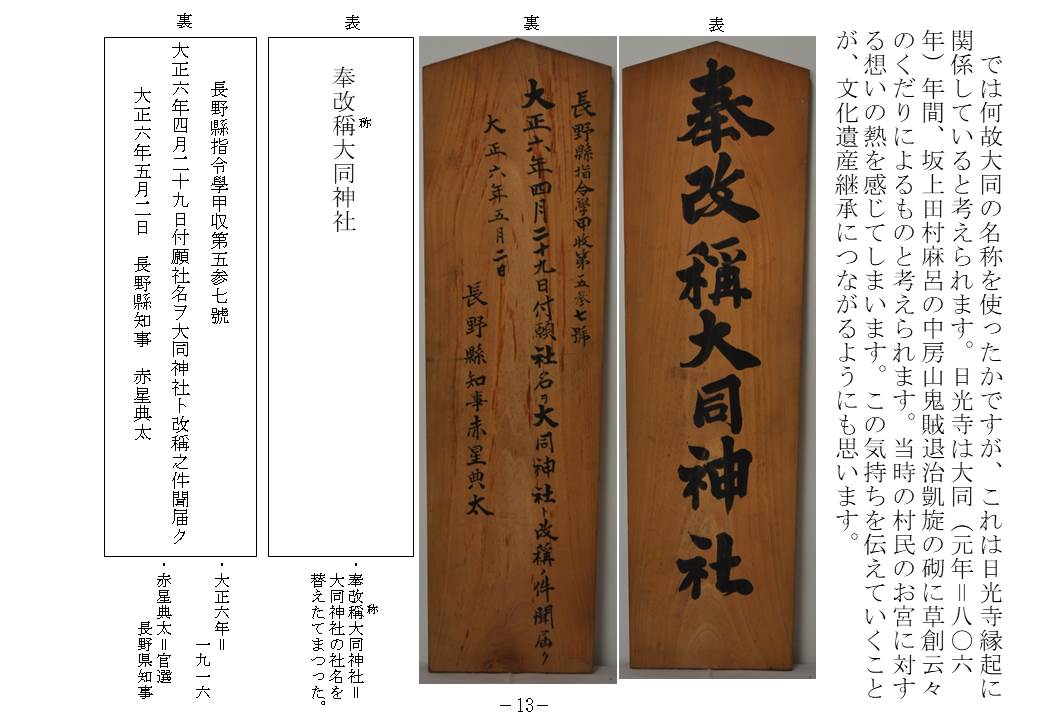 では何故大同の名称を使ったかですが、これは日光寺縁起に
関係していると考えられます。日光寺は大同（元年＝八〇六
年）年間、坂上田村麻呂の中房山鬼賊退治凱旋の砌に草創云々
のくだりによるものと考えられます。当時の村民のお宮に対す
る想いの熱を感じてしまいます。この気持ちを伝えていくこと
が、文化遺産継承につながるようにも思います。
表
奉改稱大同神社
裏
長野縣指令學甲收第五参七號
大正六年四月二十九日付願社名ヲ大同神社ト改稱ノ件聞届ク
大正六年五月二日
長野縣知事赤星典太
表
奉改稱大同神社
称
裏
長野縣指令學甲収第五参七號
大正六年四月二十九日付願社名ヲ大同神社ト改稱之件聞届ク
大正六年五月二日　長野縣知事　赤星典太
・奉改稱大同神社＝
称
大同神社の社名を
替えたてまつった。
・大正六年＝
一九一六
・赤星典太＝官選
長野県知事
－13－